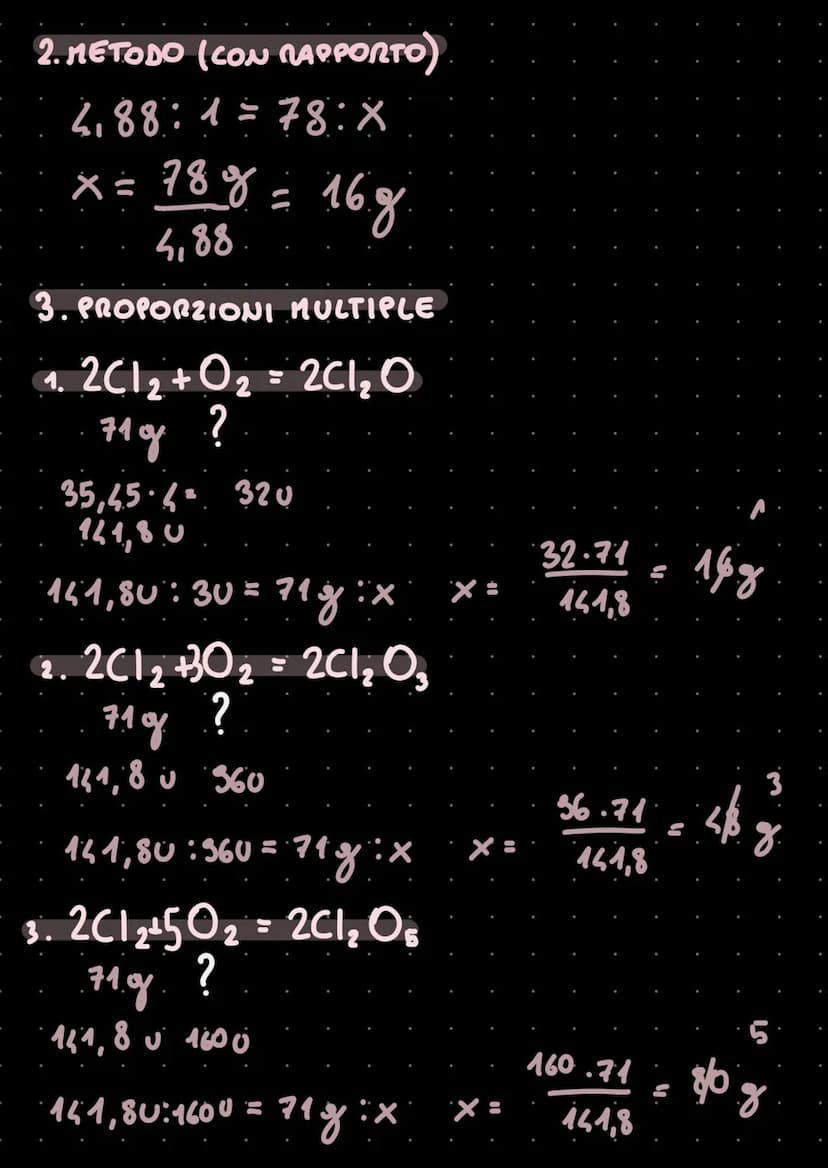 2. METODO (CON RAPPORTO)
4,88 : 1 = 78 : x
x = 78 g / 4,88 = 16 g
3. PROPORZIONI MULTIPLE
1. 2Cl₂ + O₂ = 2Cl₂O
71 g ?
35,45 · 4 = 32 u
141,8 u
1
141,8u : 3u = 71 g : x x = 32 · 71 / 141,8 = 16 g
2. 2Cl₂ + 3O₂ = 2Cl₂O₃
71 g ?
141,8 u 96u
3
141,8u : 96u = 71 g : x x = 96 · 71 / 141,8 = 48 g
3. 2Cl₂ + 5O₂ = 2Cl₂O₅
71 g ?
141,8 u 160u
5
141,8u : 160u = 71 g : x x = 160 · 71 / 141,8 = 80 g